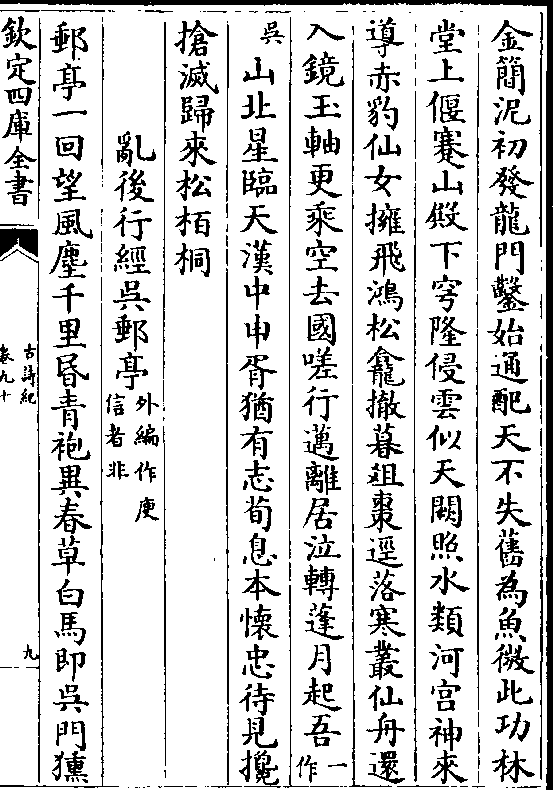 金簡泥初發龍門鑿始通配天不失舊為魚微此功林
堂上偃蹇山殿下穹隆侵雲似天闕照水類河宮神來
導赤豹仙女擁飛鴻松龕撤暮俎棗逕落寒叢仙舟還
入鏡玉軸更乘空去國嗟行邁離居泣轉蓬月起吾一作
吳山北星臨天漢中申胥猶有志荀息本懷忠待見攙
搶滅歸來松栢桐
亂後行經吳郵亭外編作庾信者非
郵亭一回望風塵千里昏青袍異春草白馬即吳門獯
欽定四庫全書
古詩紀
卷九十
九